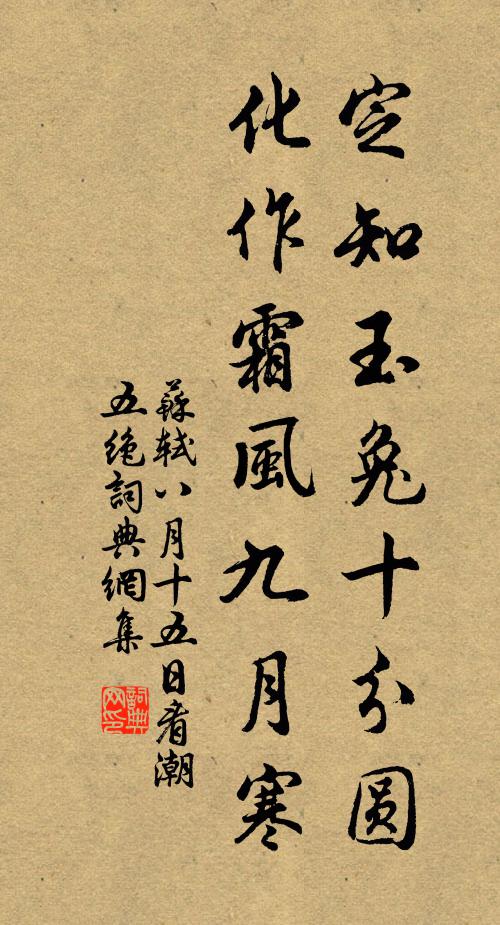 定知玉兔十分圆
化作霜風九月寒
蘇軾八月十五日看潮
五绝詞典網集
詞典網印